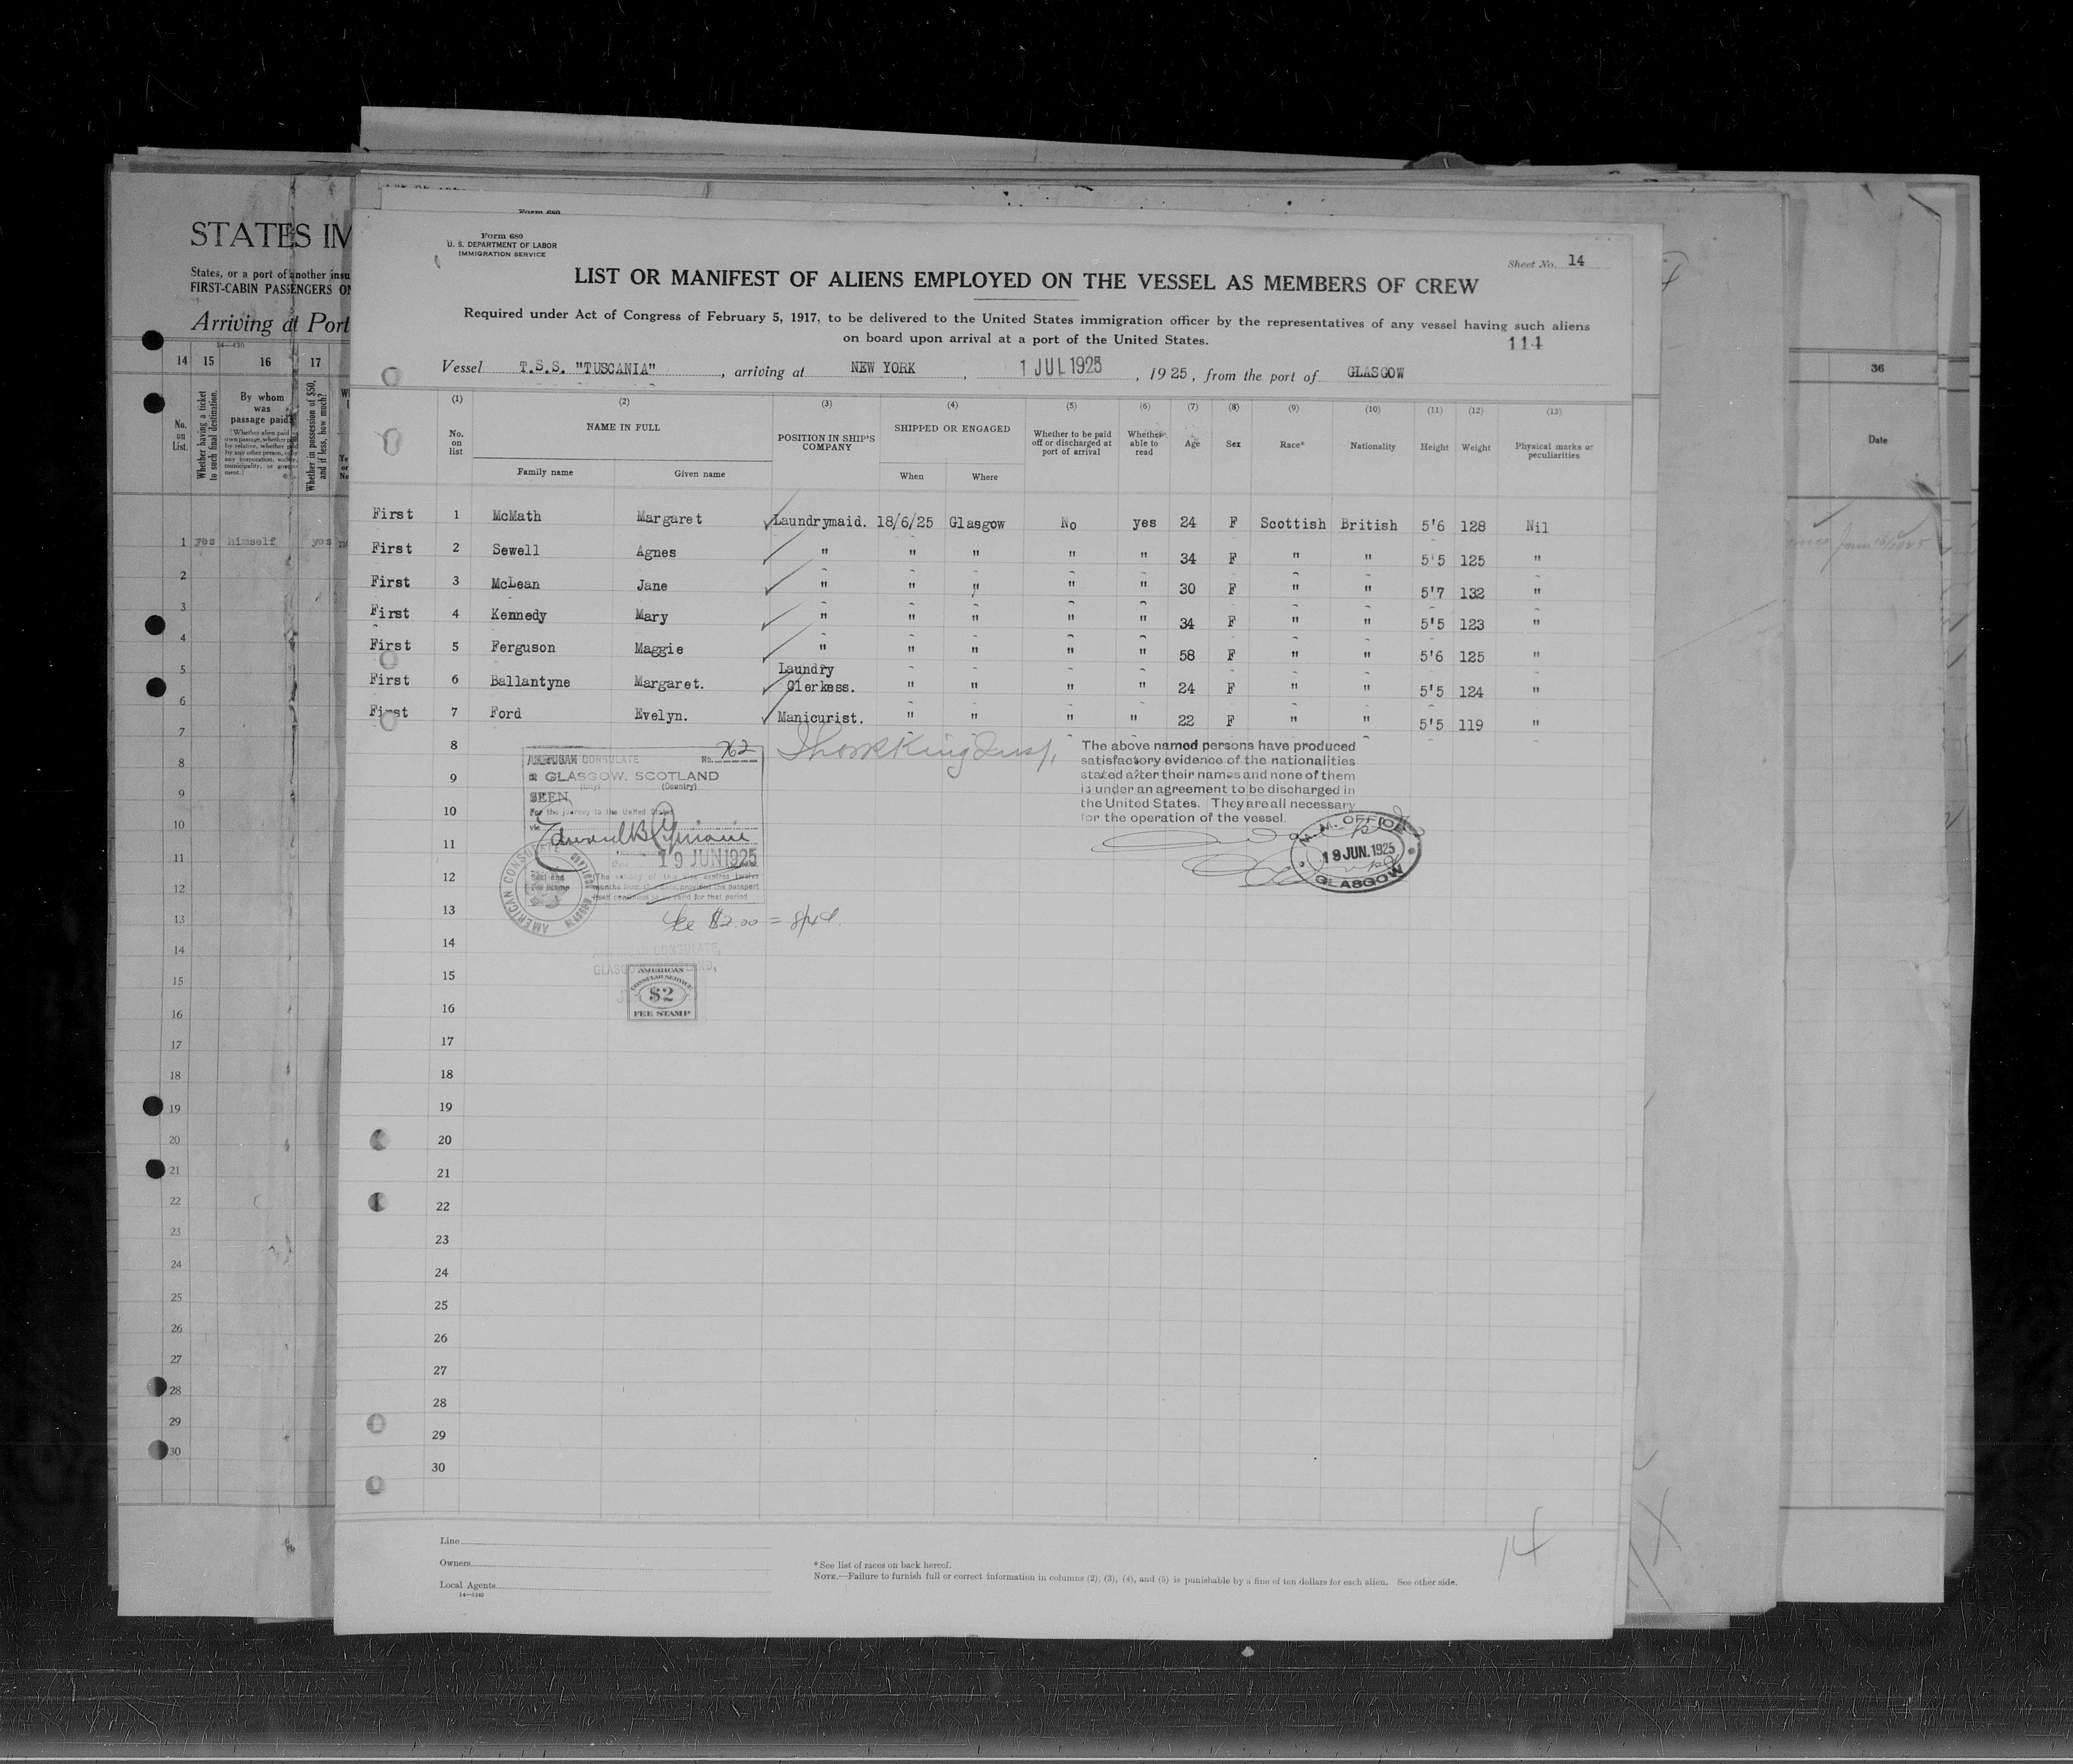 STATES IM
States, or a port of another insu
FIRST-CABIN PASSENGERS ON
Arriving at Port
14 15 16 17
No. on List.
Whether having a ticket to such final destination.
By whom was passage paid?
Whether in possession of $50, and if less, how much?
1 yes himself yes
2
3
4
5
6
7
8
9
10
11
12
13
14
15
16
17
18
19
20
21
22
23
24
25
26
27
28
29
30
36
Date
Form 680
Form 680
U. S. DEPARTMENT OF LABOR
IMMIGRATION SERVICE
Sheet No. 14
LIST OR MANIFEST OF ALIENS EMPLOYED ON THE VESSEL AS MEMBERS OF CREW
Required under Act of Congress of February 5, 1917, to be delivered to the United States immigration officer by the representatives of any vessel having such aliens
on board upon arrival at a port of the United States.
114
Vessel T.S.S. "TUSCANIA", arriving at NEW YORK, 1 JUL 1925, 1925, from the port of GLASGOW
(1) (2) (3) (4) (5) (6) (7) (8) (9) (10) (11) (12) (13)
No. on list
NAME IN FULL
Family name Given name
POSITION IN SHIP'S COMPANY
SHIPPED OR ENGAGED
When Where
Whether to be paid off or discharged at port of arrival
Whether able to read
Age Sex Race* Nationality Height Weight
Physical marks or peculiarities
First 1 McMath Margaret Laundrymaid. 18/6/25 Glasgow No yes 24 F Scottish British 5'6 128 Nil
First 2 Sewell Agnes " " " " " 34 F " " 5'5 125 "
First 3 McLean Jane " " " " " 30 F " " 5'7 132 "
First 4 Kennedy Mary " " " " " 34 F " " 5'5 123 "
First 5 Ferguson Maggie " " " " " 58 F " " 5'6 125 "
First 6 Ballantyne Margaret. Laundry Clerkess. " " " " 24 F " " 5'5 124 "
First 7 Ford Evelyn. Manicurist. " " " " 22 F " " 5'5 119 "
8
9
10
11
12
13
14
15
16
17
18
19
20
21
22
23
24
25
26
27
28
29
30
AMERICAN CONSULATE No. 762
GLASGOW, SCOTLAND
(City) (Country)
SEEN
For the journey to the United States
via
19 JUN 1925
The validity of this visa expires twelve
months from this date, provided the passport
continues to be valid for that period
AMERICAN CONSULATE
Fee $2.00 =
AMERICAN CONSULATE,
GLASGOW, SCOTLAND,
AMERICAN
CONSULAR SERVICE
$2
FEE STAMP
The above named persons have produced
satisfactory evidence of the nationalities
stated after their names and none of them
is under an agreement to be discharged in
the United States. They are all necessary
for the operation of the vessel.
M.M. OFFICE
19 JUN. 1925
GLASGOW
Line
Owners
Local Agents
14—4240
*See list of races on back hereof.
NOTE.—Failure to furnish full or correct information in columns (2), (3), (4), and (5) is punishable by a fine of ten dollars for each alien. See other side.
14